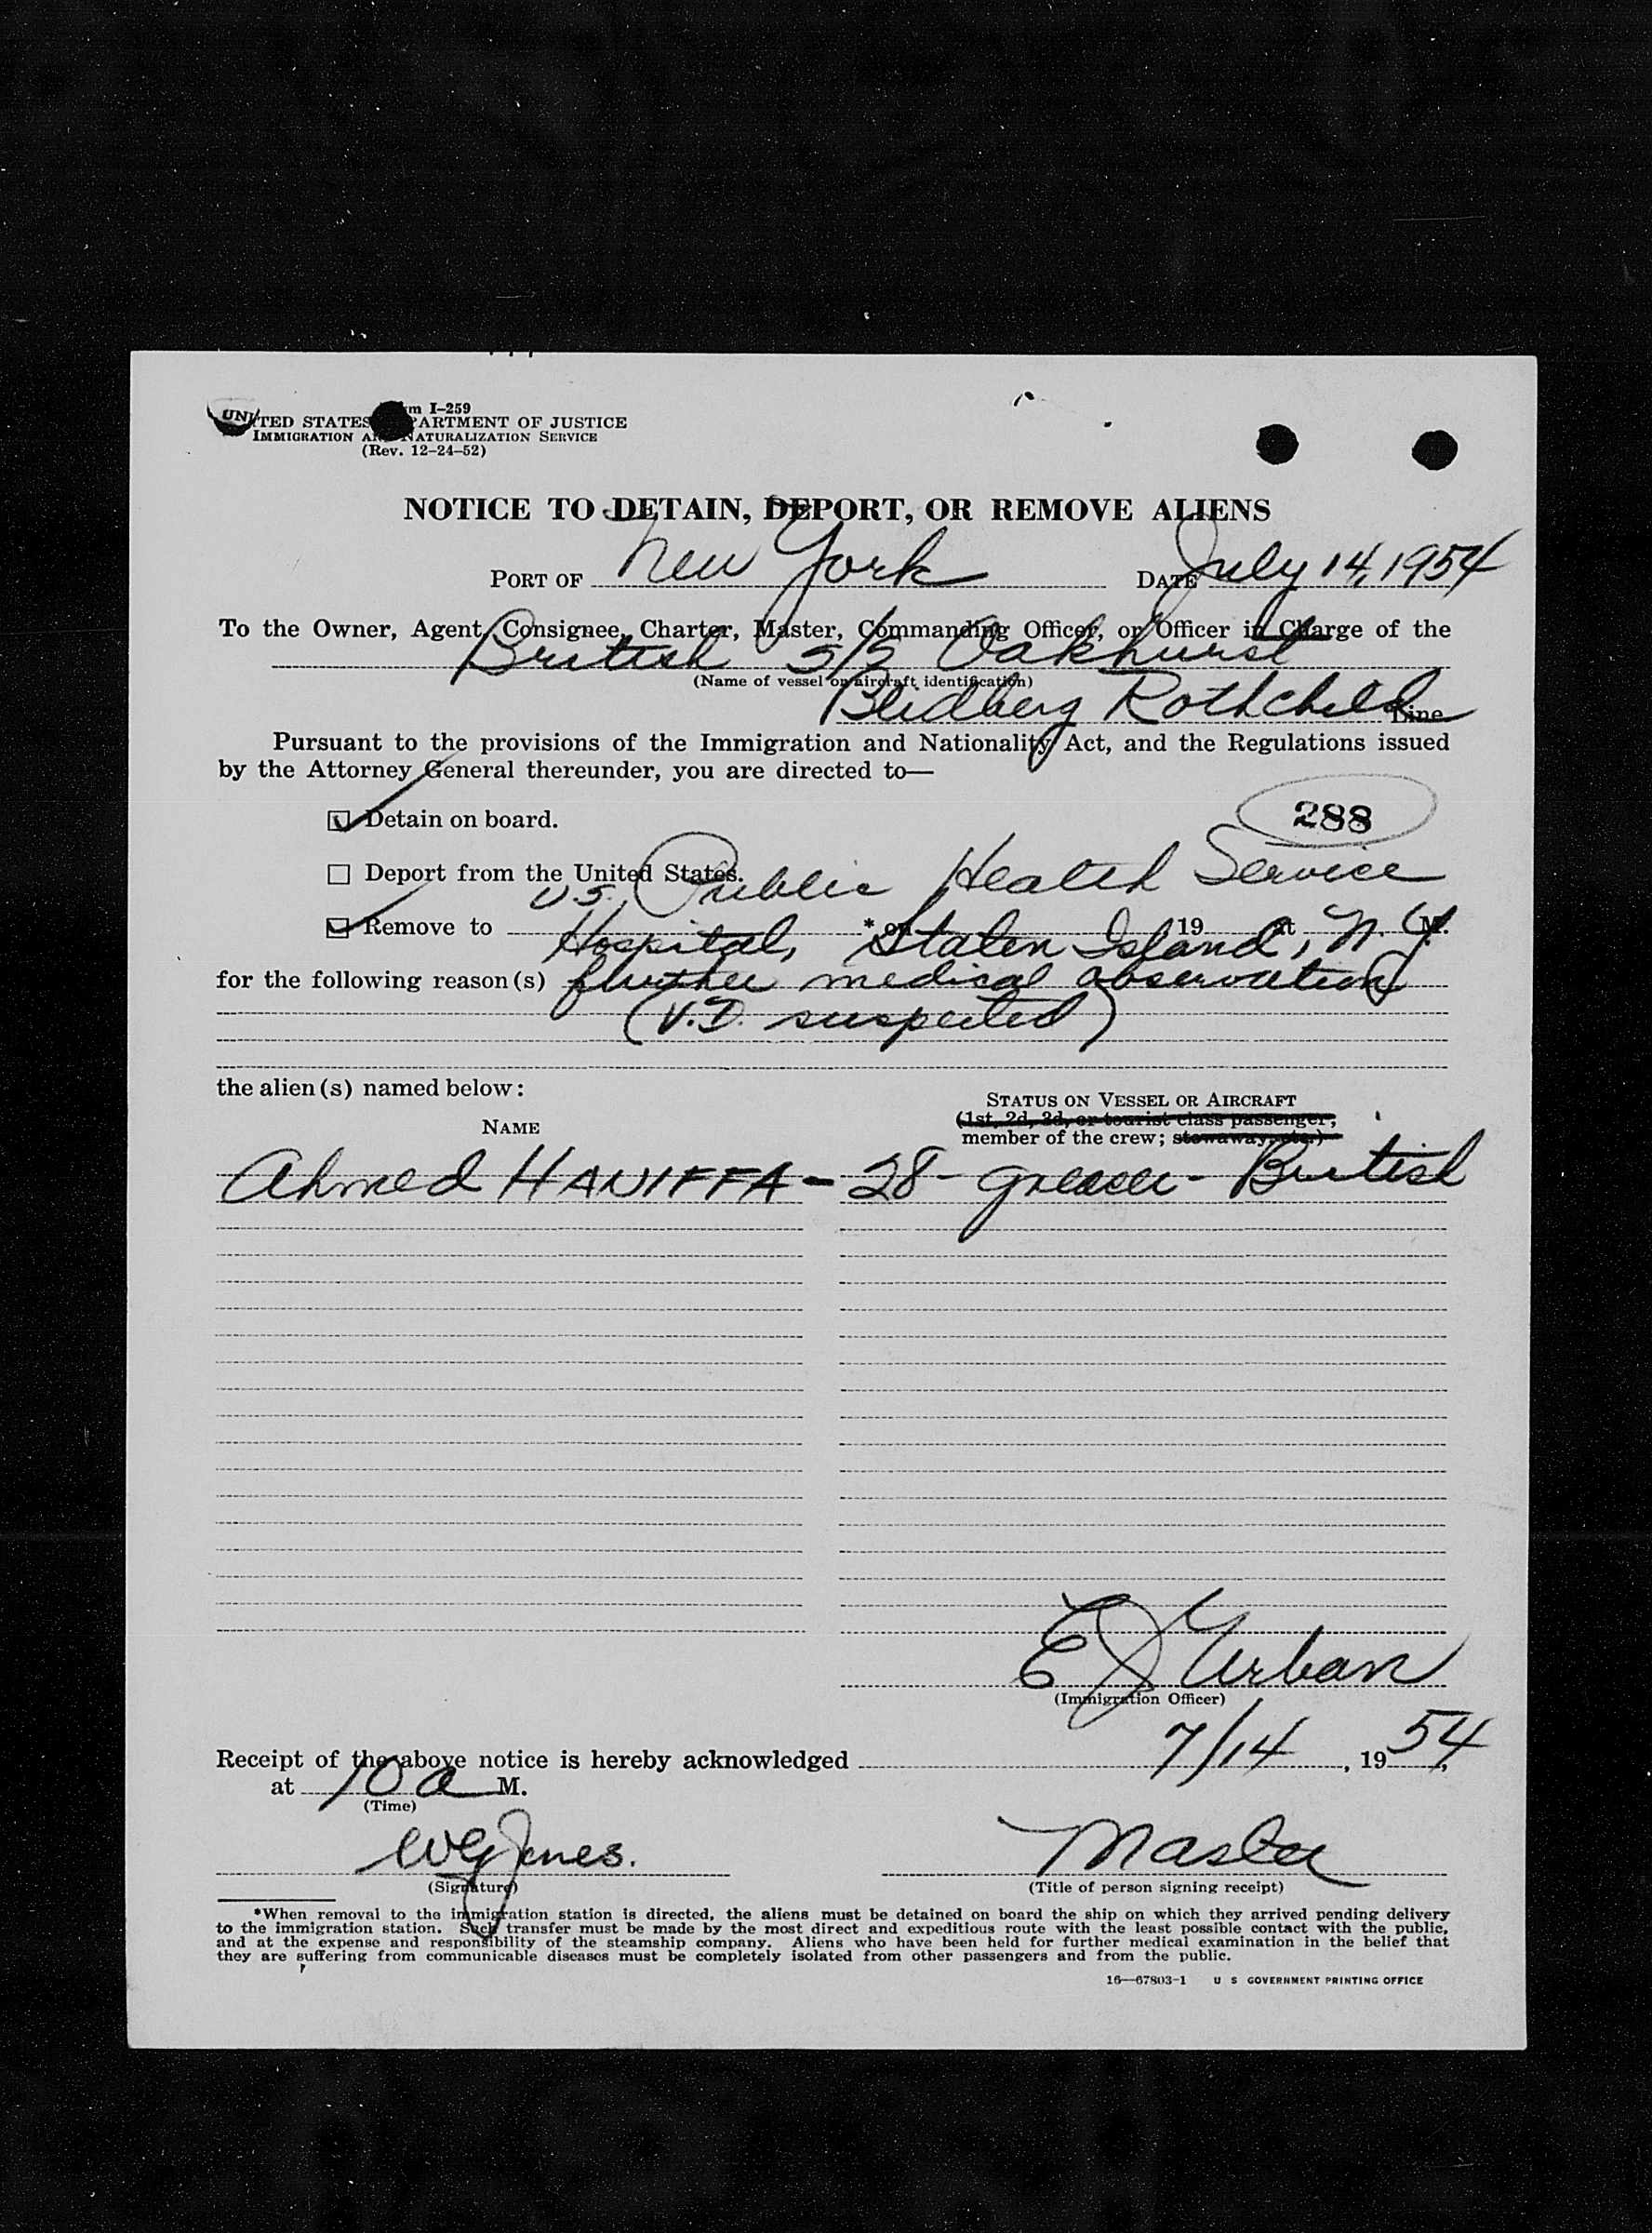 Form I-259
UNITED STATES DEPARTMENT OF JUSTICE
IMMIGRATION AND NATURALIZATION SERVICE
(Rev. 12-24-52)
NOTICE TO DETAIN, DEPORT, OR REMOVE ALIENS
PORT OF New York DATE July 14, 1954
To the Owner, Agent, Consignee, Charter, Master, Commanding Officer, or Officer in Charge of the
British S/S Oakhurst
(Name of vessel or aircraft identification)
Blidberg Rothchild Line
Pursuant to the provisions of the Immigration and Nationality Act, and the Regulations issued
by the Attorney General thereunder, you are directed to—
☑ Detain on board.
288
☐ Deport from the United States.
U.S. Public Health Service
☑ Remove to * on 19 at M.
Hospital, Staten Island, N.Y.
for the following reason(s) further medical observation
(V.D. suspected)
the alien(s) named below:
STATUS ON VESSEL OR AIRCRAFT
(1st, 2d, 3d, or tourist class passenger;
NAME
member of the crew; stowaway, etc.)
Ahmed HANIFFA - 28 - greaser - British
E J Urban
(Immigration Officer)
Receipt of the above notice is hereby acknowledged 7/14, 1954,
at 10 a M.
(Time)
WG Jones. Master
(Signature) (Title of person signing receipt)
*When removal to the immigration station is directed, the aliens must be detained on board the ship on which they arrived pending delivery
to the immigration station. Such transfer must be made by the most direct and expeditious route with the least possible contact with the public,
and at the expense and responsibility of the steamship company. Aliens who have been held for further medical examination in the belief that
they are suffering from communicable diseases must be completely isolated from other passengers and from the public.
16—67803-1 U S GOVERNMENT PRINTING OFFICE